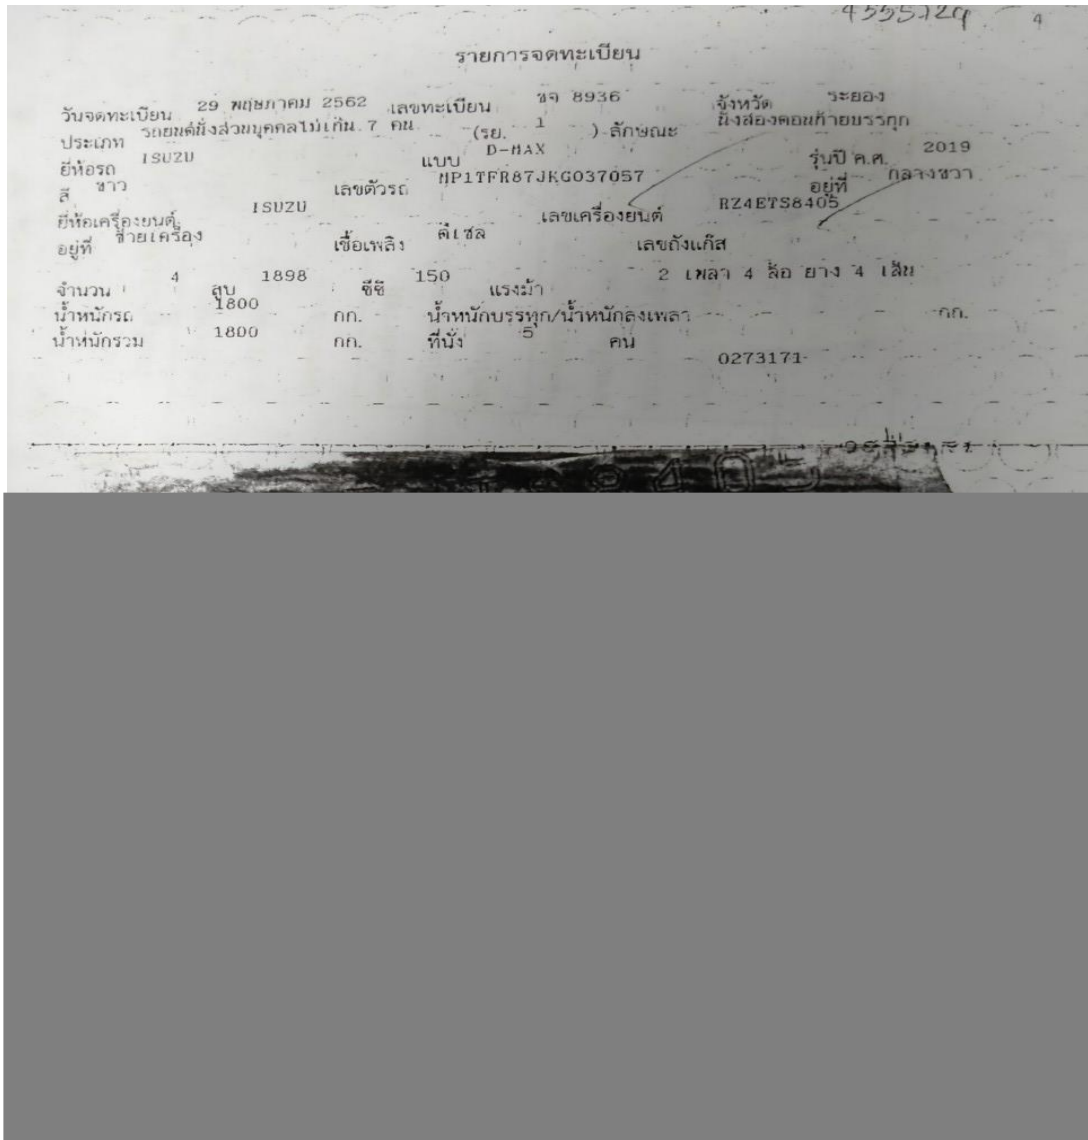 4555729 4
รายการจดทะเบียน
วันจดทะเบียน 29 พฤษภาคม 2562 เลขทะเบียน ขจ 8936 จังหวัด ระยอง
ประเภท รถยนต์นั่งส่วนบุคคลไม่เกิน 7 คน (รย. 1 ) ลักษณะ นั่งสองตอนท้ายบรรทุก
ยี่ห้อรถ ISUZU แบบ D-MAX รุ่นปี ค.ศ. 2019
สี ขาว เลขตัวรถ MP1TFR87JKG037057 อยู่ที่ กลางขวา
ยี่ห้อเครื่องยนต์ ISUZU เลขเครื่องยนต์ RZ4ETS8405
อยู่ที่ ซ้ายเครื่อง เชื้อเพลิง ดีเซล เลขถังแก๊ส
จำนวน 4 สูบ 1898 ซีซี 150 แรงม้า 2 เพลา 4 ล้อ ยาง 4 เส้น
น้ำหนักรถ 1800 กก. น้ำหนักบรรทุก/น้ำหนักลงเพลา กก.
น้ำหนักรวม 1800 กก. ที่นั่ง 5 คน
0273171